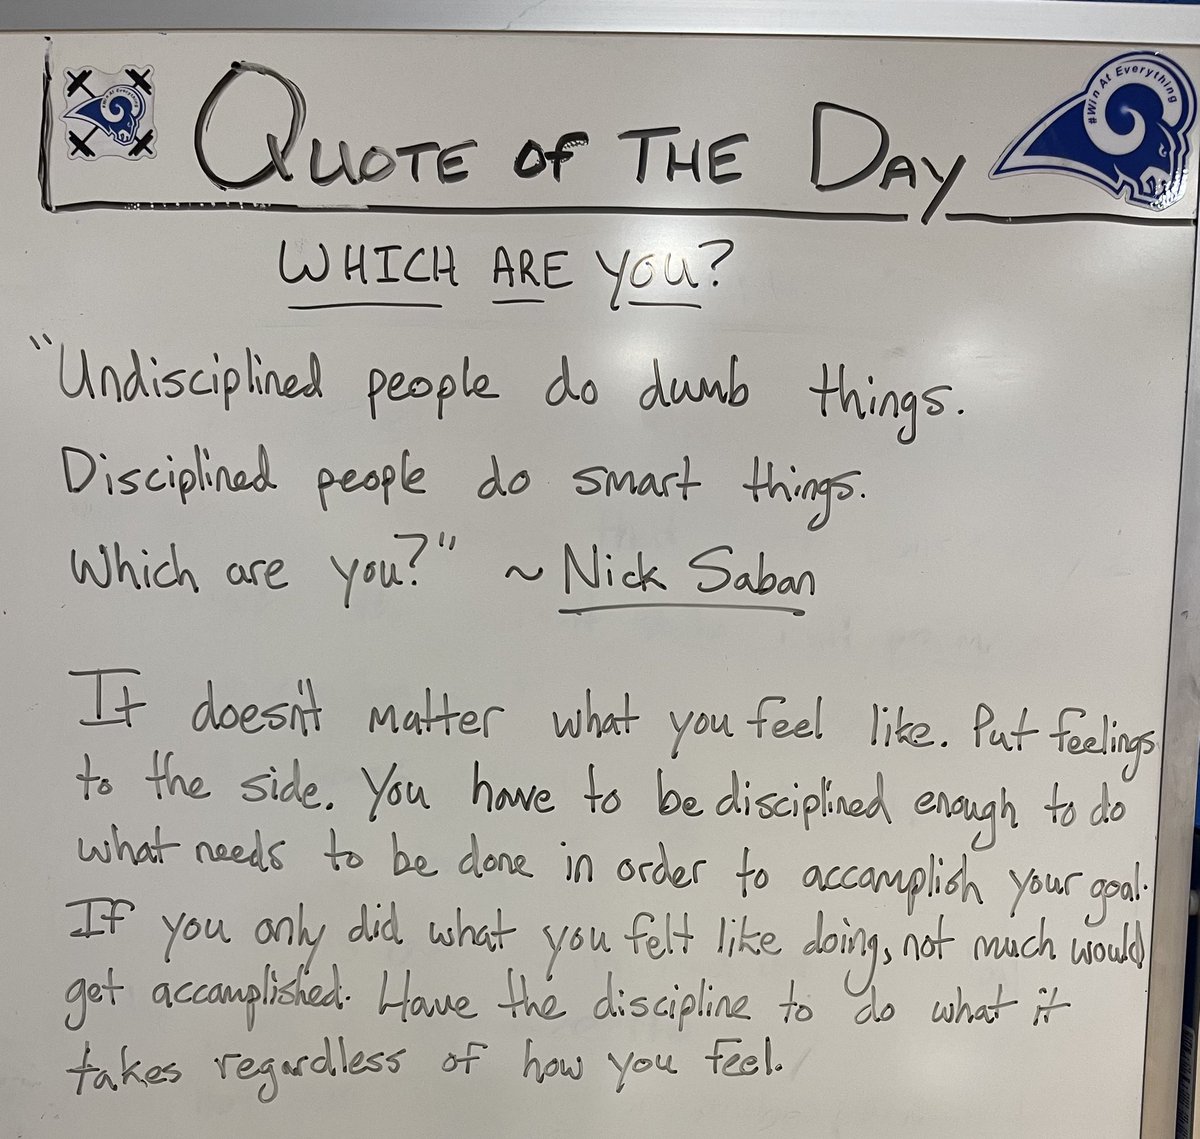 QUOTE OF THE DAY
#Win At Everything
WHICH ARE YOU?
"Undisciplined people do dumb things.
Disciplined people do smart things.
Which are you?" ~ Nick Saban
It doesn't matter what you feel like. Put feelings
to the side. You have to be disciplined enough to do
what needs to be done in order to accamplish your goal.
If you only did what you felt like doing, not much would
get accamplished. Have the discipline to do what it
takes regardless of how you feel.